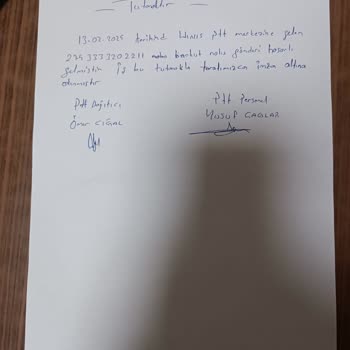 Tutanaktır
13-02-2025 tarihinde Ptt merkezine gelen
275 3333202211 nolu barkod nolu gönderi hasarlı
gelmiştir İş bu tutanakla tarafımızca imza altına
alınmıştır
Ptt Dağıtıcı Ptt Personel
Ömer YUSUF ÇAĞLAR